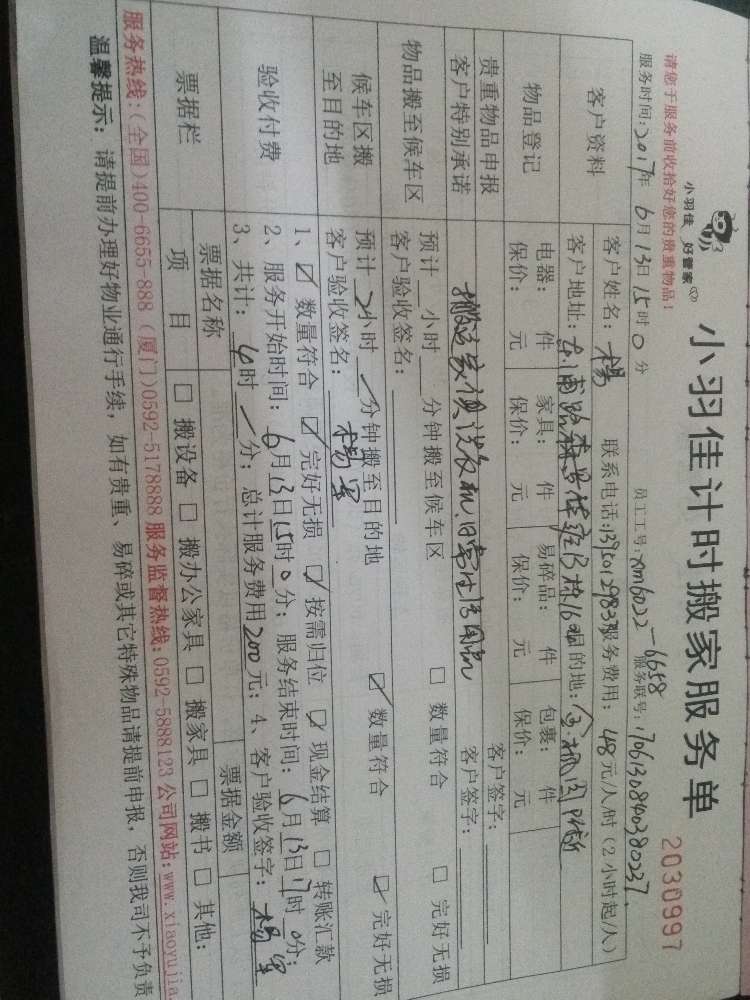 小羽佳 好管家
小羽佳计时搬家服务单
2030997
请您于服务前收拾好您的贵重物品！
员工工号：xm6022-6658 服务联号：170613084038023
服务时间：2017年6月13日15时0分
客户资料
客户姓名：杨 联系电话： 服务费用：48元/人/时（2小时起/人）
客户地址： 目的地：
物品登记
电器： 件 家具： 件 易碎品： 件 包裹： 件
保价： 元 保价： 元 保价： 元 保价： 元
贵重物品申报
客户签字：
客户特别承诺
搬运家俱洗衣机、日常生活用品
客户签字：
物品搬至候车区
预计 小时 分钟搬至候车区 □ 数量符合 □ 完好无损
客户验收签名：
候车区搬至目的地
预计2小时/分钟搬至目的地 ☑ 数量符合 ☑ 完好无损
客户验收签名：杨军
验收付费
1、☑ 数量符合 ☑ 完好无损 ☑ 按需归位 ☑ 现金结算 □ 转账汇款
2、服务开始时间：6月13日15时0分；服务结束时间：6月13日17时0分；
3、共计：4时/分；总计服务费用200元；4、客户验收签字：杨军
票据栏
票据名称 票据金额
项目 □ 搬设备 □ 搬办公家具 □ 搬家具 □ 搬书 □ 其他：
服务热线：(全国)400-6655-888 (厦门)0592-5178888 服务监督热线：0592-5888123 公司网站：www.xiaoyujia.
温馨提示：请提前办理好物业通行手续，如有贵重、易碎或其它特殊物品请提前申报，否则我司不予负责